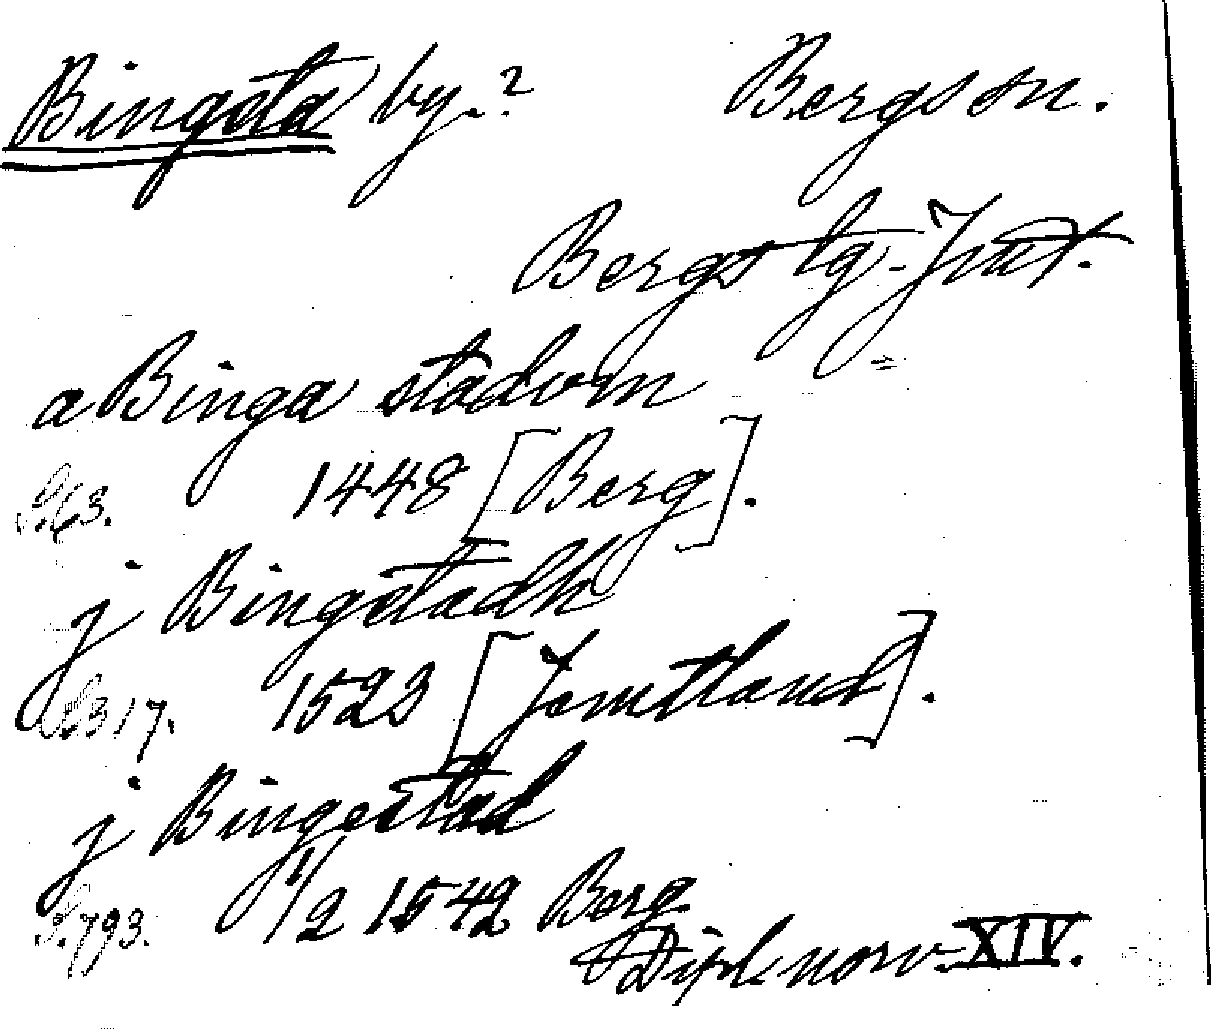 Bingsta by.? Bergs sn.
Bergs tg. Jmtl.
a Binga stadom
S. 63. 1448 [Berg].
j Bingstadh
S. 317. 1523 [Jemtland].
j Bingestad
S. 793. 1/2 1542 Berg
Dipl. norv. XIV.